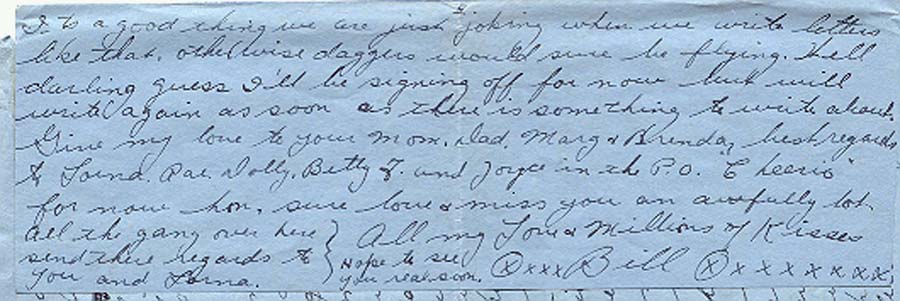 It is a good thing we are just joking when we write letters
like that, otherwise daggers would sure be flying. Well
darling guess I'll be signing off for now but will
write again as soon as there is something to write about.
Give my love to your Mom, Dad, Marg & Brenda, best regards
to Lorna, Rae, Dolly, Betty J. and Joyce in the P.O. "Cheerio"
for now hon, sure love & miss you an awfully lot.
All the gang over here } All my Love & Millions of Kisses
send there regards to } Hope to see ⓧxxx Bill ⓧxxxxxxx
you and Lorna. } you real soon.